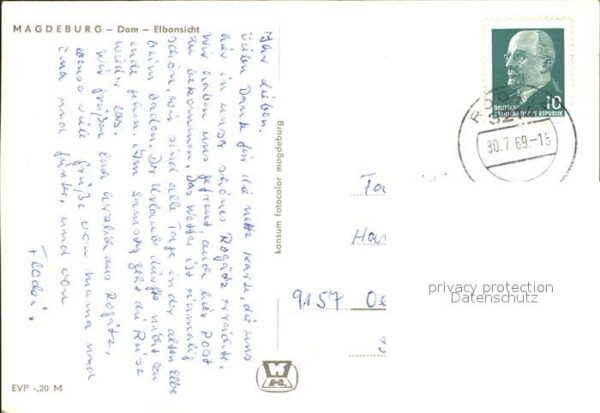 MAGDEBURG – Dom – Elbansicht
Ihr Lieben.
vielen Dank für die nette Karte, die uns
hier in unser schönes Rogätz erreichte.
Wir haben uns gefreut, auch hier Post
zu bekommen. Das Wetter ist einmalig
schön, wir sind alle Tage in der alten Elbe
beim baden. Der Urlaub dürfte nicht zu
ende gehen. Am Samstag geht die Reise
wieder los.
Wir grüßen Euch herzlich aus Rogätz,
ebenso viele Grüße von Mama und
und von
EVP -,20 M
konsum fotocolor magdeburg
DEUTSCHE
DEMOKRATISCHE REPUBLIK
10
ROGÄTZ
30.7.69-15
Fa
Ha
9157 Oe
privacy protection
Datenschutz